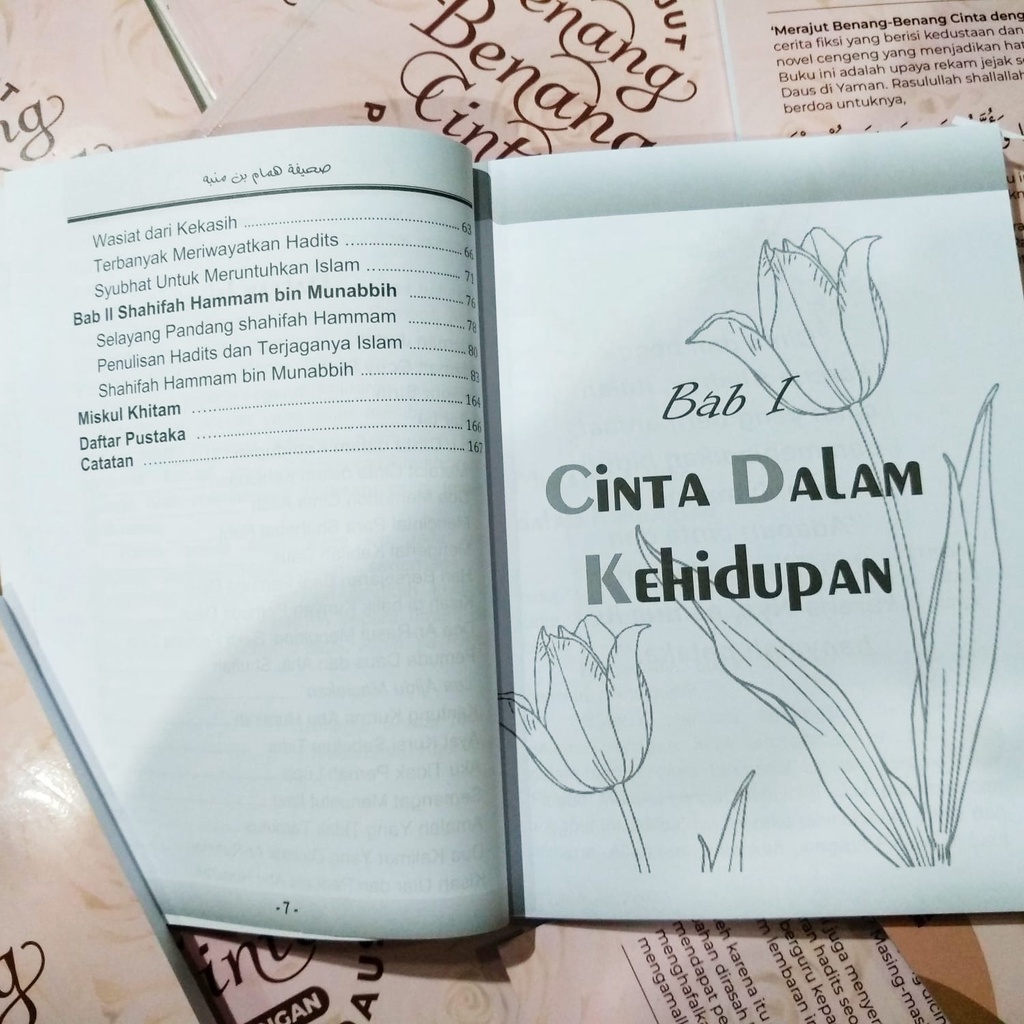 ng
JUT
enang
Benang
Cint
P
'Merajut Benang-Benang Cinta deng
cerita fiksi yang berisi kedustaan dan
novel cengeng yang menjadikan hat
Buku ini adalah upaya rekam jejak se
Daus di Yaman. Rasulullah shallallah
berdoa untuknya,
صحيفة همام بن منبه
Wasiat dari Kekasih ........ 63
Terbanyak Meriwayatkan Hadits ........ 66
Syubhat Untuk Meruntuhkan Islam ........ 71
Bab II Shahifah Hammam bin Munabbih ........ 76
Selayang Pandang shahifah Hammam ........ 78
Penulisan Hadits dan Terjaganya Islam ........ 80
Shahifah Hammam bin Munabbih ........ 83
Miskul Khitam ........ 164
Daftar Pustaka ........ 166
Catatan ........ 167
-7-
Bab I
Cinta Dalam
Kehidupan
inta
NGAN
DAU
eh karena itu
ahan dirasah
mendapat pe
menghafalka
mengamall
juga menye
ran hadits seo
berguru kepa
m lembaran in
Masing-mas